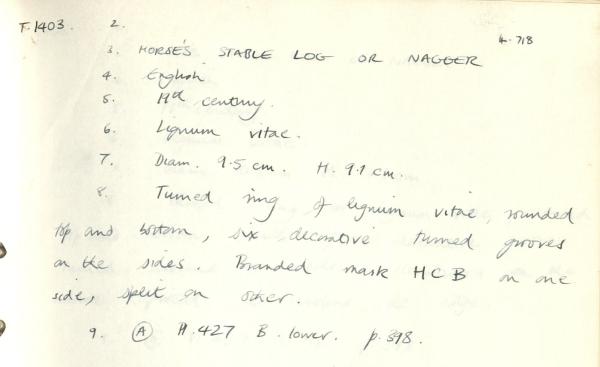 F.1403. 2. 4.718
3. HORSE'S STABLE LOG OR NAGGER
4. English
5. 19th century.
6. Lignum vitae.
7. Diam. 9.5 cm. H. 9.1 cm.
8. Turned ring of lignum vitae, rounded
top and bottom, six decorative turned grooves
on the sides. Branded mark HCB on one
side, split on other.
9. (A) H.427 B. lower. p.398.